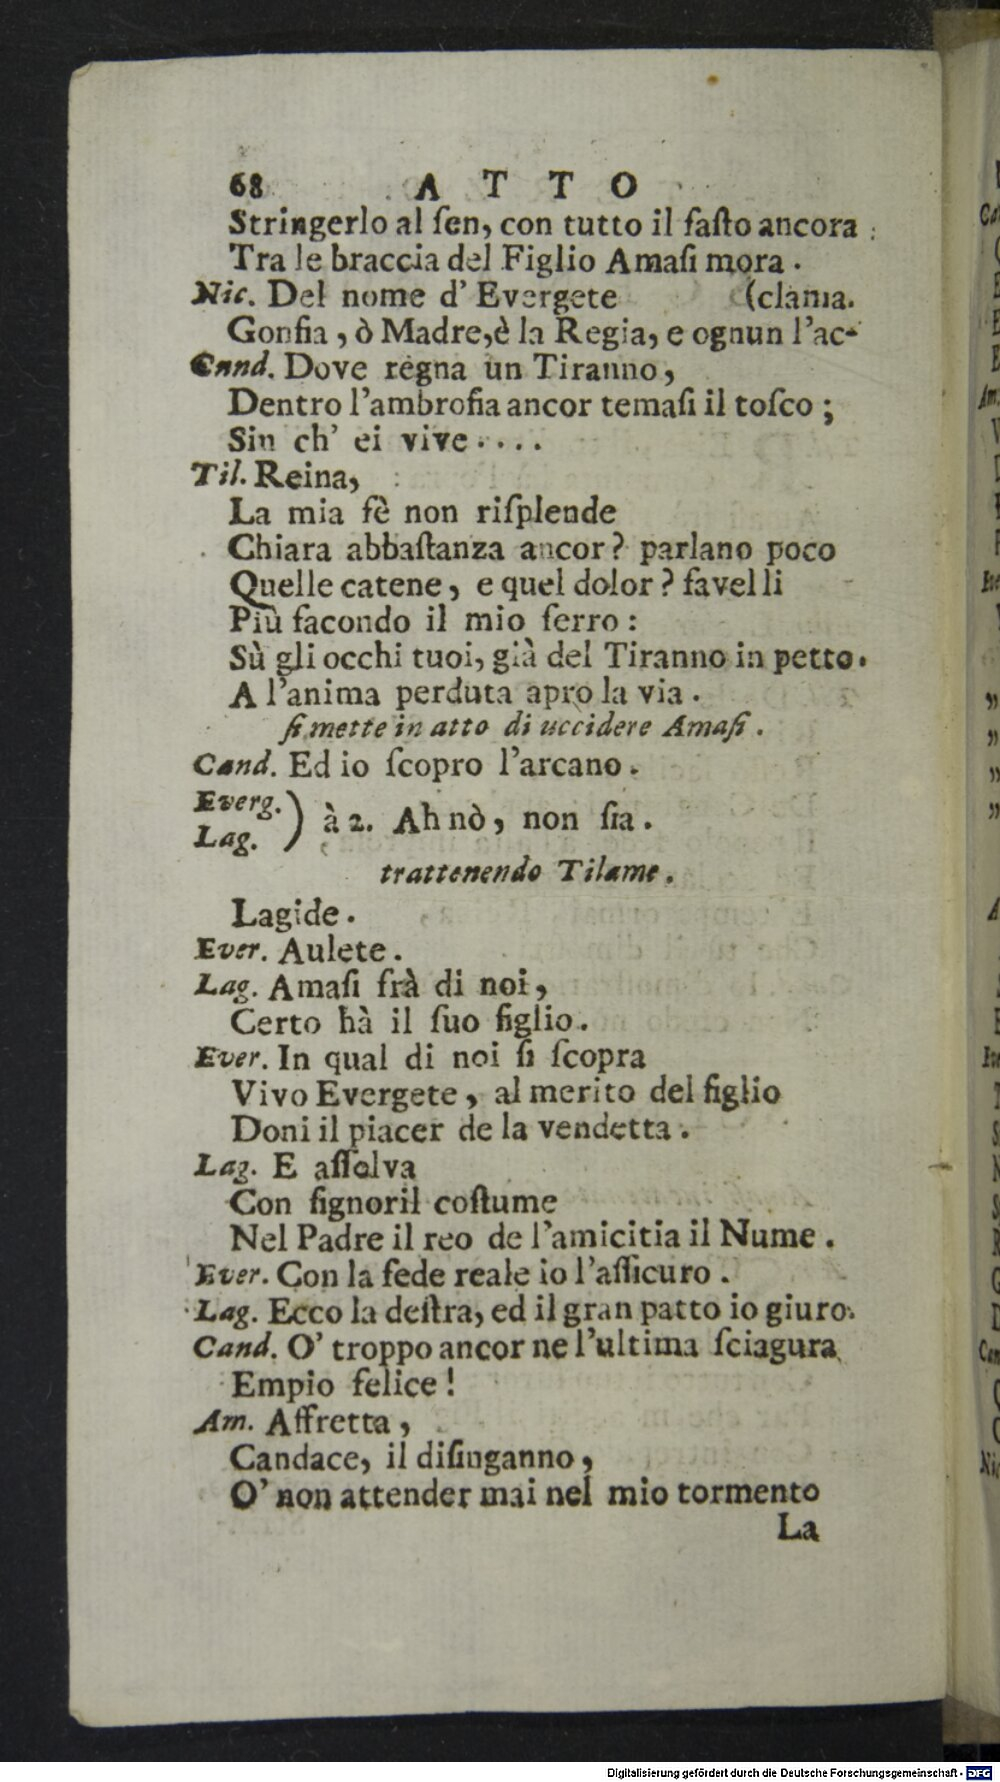 68 A T T O
Stringerlo al ſen, con tutto il faſto ancora :
Tra le braccia del Figlio Amaſi mora .
Nic. Del nome d' Evergete (clama.
Gonfia , ò Madre,è la Regia, e ognun l'ac-
Cand. Dove regna un Tiranno,
Dentro l'ambroſia ancor temaſi il toſco ;
Sin ch' ei vive . . . .
Til. Reina,
La mia fè non riſplende
Chiara abbaſtanza ancor? parlano poco
Quelle catene, e quel dolor? favelli
Più facondo il mio ferro :
Sù gli occhi tuoi, già del Tiranno in petto.
A l'anima perduta apro la via .
ſi mette in atto di uccidere Amaſi .
Cand. Ed io ſcopro l'arcano .
Everg.
Lag. ) à 2. Ah nò, non ſia .
trattenendo Tilame .
Lagide .
Ever. Aulete .
Lag. Amaſi frà di noi,
Certo hà il ſuo figlio .
Ever. In qual di noi ſi ſcopra
Vivo Evergete, al merito del figlio
Doni il piacer de la vendetta .
Lag. E aſſolva
Con ſignoril coſtume
Nel Padre il reo de l'amicitia il Nume .
Ever. Con la fede reale io l'aſſicuro .
Lag. Ecco la deſtra, ed il gran patto io giuro.
Cand. O' troppo ancor ne l'ultima ſciagura
Empio felice !
Am. Affretta ,
Candace, il diſinganno ,
O' non attender mai nel mio tormento
La
Digitalisierung gefördert durch die Deutsche Forschungsgemeinschaft - DFG